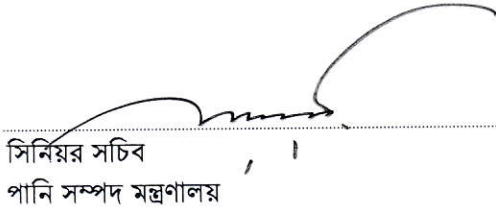 সিনিয়র সচিব
পানি সম্পদ মন্ত্রণালয়